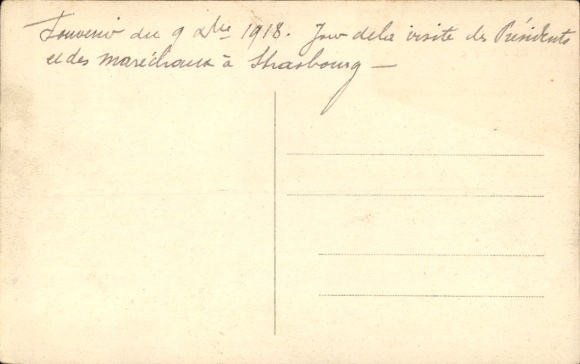 Souvenir du 9 Dbre 1918. Jour de la visite des Présidents
et des maréchaux à Strasbourg —